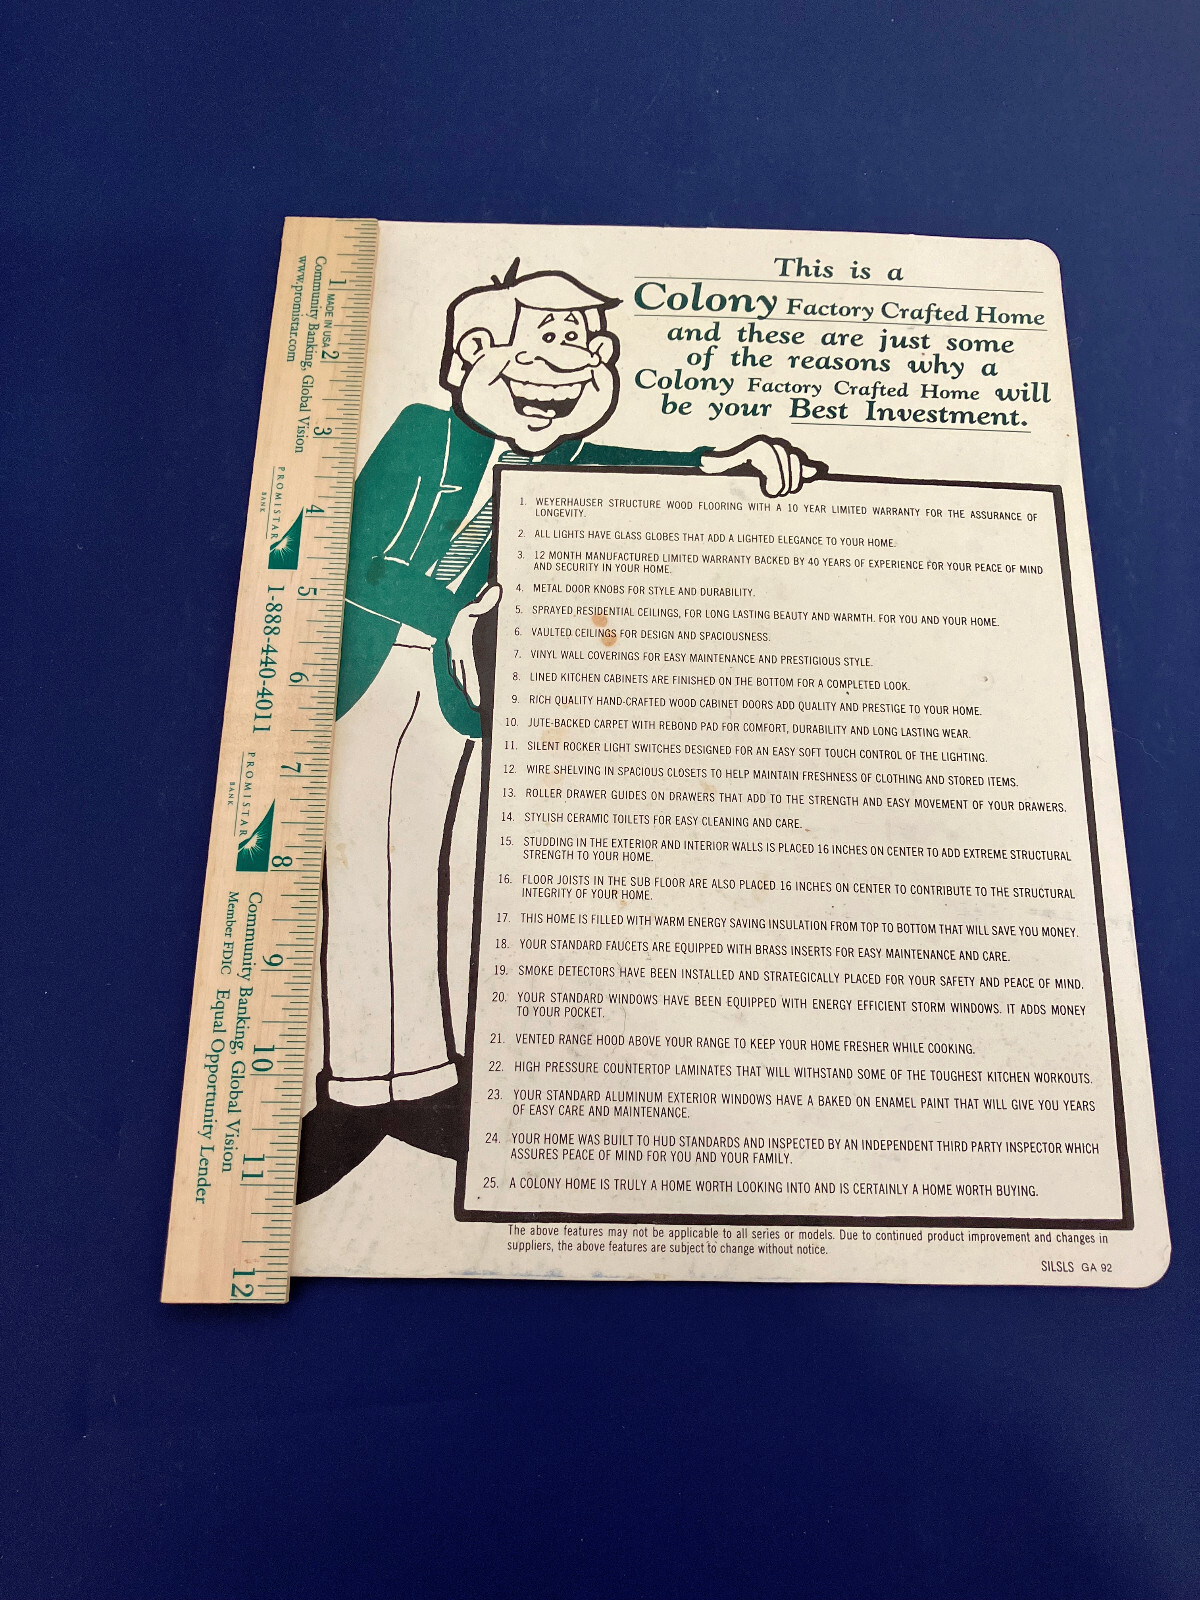 This is a
Colony Factory Crafted Home
and these are just some
of the reasons why a
Colony Factory Crafted Home will
be your Best Investment.
1. WEYERHAUSER STRUCTURE WOOD FLOORING WITH A 10 YEAR LIMITED WARRANTY FOR THE ASSURANCE OF
LONGEVITY.
2. ALL LIGHTS HAVE GLASS GLOBES THAT ADD A LIGHTED ELEGANCE TO YOUR HOME.
3. 12 MONTH MANUFACTURED LIMITED WARRANTY BACKED BY 40 YEARS OF EXPERIENCE FOR YOUR PEACE OF MIND
AND SECURITY IN YOUR HOME.
4. METAL DOOR KNOBS FOR STYLE AND DURABILITY.
5. SPRAYED RESIDENTIAL CEILINGS, FOR LONG LASTING BEAUTY AND WARMTH. FOR YOU AND YOUR HOME.
6. VAULTED CEILINGS FOR DESIGN AND SPACIOUSNESS.
7. VINYL WALL COVERINGS FOR EASY MAINTENANCE AND PRESTIGIOUS STYLE.
8. LINED KITCHEN CABINETS ARE FINISHED ON THE BOTTOM FOR A COMPLETED LOOK.
9. RICH QUALITY HAND-CRAFTED WOOD CABINET DOORS ADD QUALITY AND PRESTIGE TO YOUR HOME.
10. JUTE-BACKED CARPET WITH REBOND PAD FOR COMFORT, DURABILITY AND LONG LASTING WEAR.
11. SILENT ROCKER LIGHT SWITCHES DESIGNED FOR AN EASY SOFT TOUCH CONTROL OF THE LIGHTING.
12. WIRE SHELVING IN SPACIOUS CLOSETS TO HELP MAINTAIN FRESHNESS OF CLOTHING AND STORED ITEMS.
13. ROLLER DRAWER GUIDES ON DRAWERS THAT ADD TO THE STRENGTH AND EASY MOVEMENT OF YOUR DRAWERS.
14. STYLISH CERAMIC TOILETS FOR EASY CLEANING AND CARE.
15. STUDDING IN THE EXTERIOR AND INTERIOR WALLS IS PLACED 16 INCHES ON CENTER TO ADD EXTREME STRUCTURAL
STRENGTH TO YOUR HOME.
16. FLOOR JOISTS IN THE SUB FLOOR ARE ALSO PLACED 16 INCHES ON CENTER TO CONTRIBUTE TO THE STRUCTURAL
INTEGRITY OF YOUR HOME.
17. THIS HOME IS FILLED WITH WARM ENERGY SAVING INSULATION FROM TOP TO BOTTOM THAT WILL SAVE YOU MONEY.
18. YOUR STANDARD FAUCETS ARE EQUIPPED WITH BRASS INSERTS FOR EASY MAINTENANCE AND CARE.
19. SMOKE DETECTORS HAVE BEEN INSTALLED AND STRATEGICALLY PLACED FOR YOUR SAFETY AND PEACE OF MIND.
20. YOUR STANDARD WINDOWS HAVE BEEN EQUIPPED WITH ENERGY EFFICIENT STORM WINDOWS. IT ADDS MONEY
TO YOUR POCKET.
21. VENTED RANGE HOOD ABOVE YOUR RANGE TO KEEP YOUR HOME FRESHER WHILE COOKING.
22. HIGH PRESSURE COUNTERTOP LAMINATES THAT WILL WITHSTAND SOME OF THE TOUGHEST KITCHEN WORKOUTS.
23. YOUR STANDARD ALUMINUM EXTERIOR WINDOWS HAVE A BAKED ON ENAMEL PAINT THAT WILL GIVE YOU YEARS
OF EASY CARE AND MAINTENANCE.
24. YOUR HOME WAS BUILT TO HUD STANDARDS AND INSPECTED BY AN INDEPENDENT THIRD PARTY INSPECTOR WHICH
ASSURES PEACE OF MIND FOR YOU AND YOUR FAMILY.
25. A COLONY HOME IS TRULY A HOME WORTH LOOKING INTO AND IS CERTAINLY A HOME WORTH BUYING.
The above features may not be applicable to all series or models. Due to continued product improvement and changes in
suppliers, the above features are subject to change without notice.
SILSLS GA 92
1 2 3 4 5 6 7 8 9 10 11 12
MADE IN USA
Community Banking, Global Vision
www.promistar.com
PROMISTAR
BANK
1-888-440-4011
PROMISTAR
BANK
Community Banking, Global Vision
Member FDIC Equal Opportunity Lender